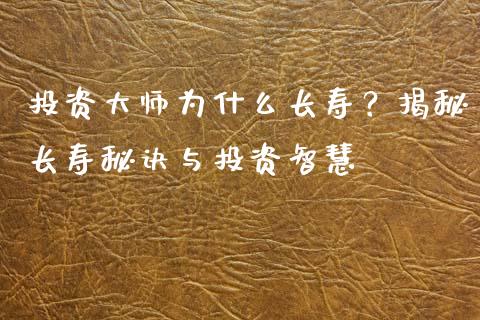 投资大师为什么长寿？揭秘
长寿秘诀与投资智慧